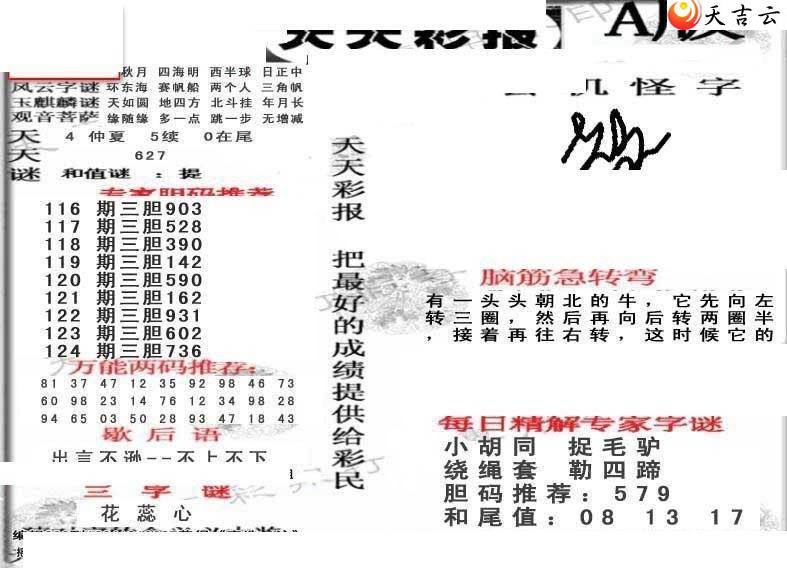 天吉云
天天彩报
秋月 四海明 西半球 日正中
风云字谜 环东海 赛帆船 两个人 三角帆
玉麒麟谜 天如圆 地四方 北斗挂 年月长
观音菩萨 缘随缘 多一点 跳一步 无增减
天 4 仲夏 5续 0在尾
天 627
谜 和值谜 : 提
专家胆码推荐
116 期三胆903
117 期三胆528
118 期三胆390
119 期三胆142
120 期三胆590
121 期三胆162
122 期三胆931
123 期三胆602
124 期三胆736
万能两码推荐:
81 37 47 12 35 92 98 46 73
60 98 23 14 76 12 34 98 28
94 65 03 50 28 93 47 18 43
歇后语
出言不逊--不上不下
三字谜
花蕊心
天天彩报 把最好的成绩提供给彩民
机怪字
脑筋急转弯
有一头头朝北的牛，它先向左
转三圈，然后再向后转两圈半
，接着再往右转，这时候它的
每日精解专家字谜
小胡同 捉毛驴
绕绳套 勒四蹄
胆码推荐：579
和尾值：08 13 17